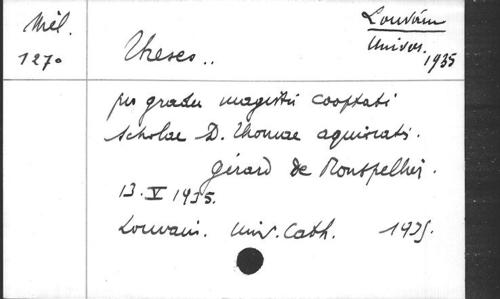 Mél.
1270
Louvain
Univers.
1935
Theses..
pro gradu magistri cooptati
scholae D. Thomae aquinatis.
Gérard de Montpellier.
13. V 1935.
Louvain. Univ. Cath. 1935.